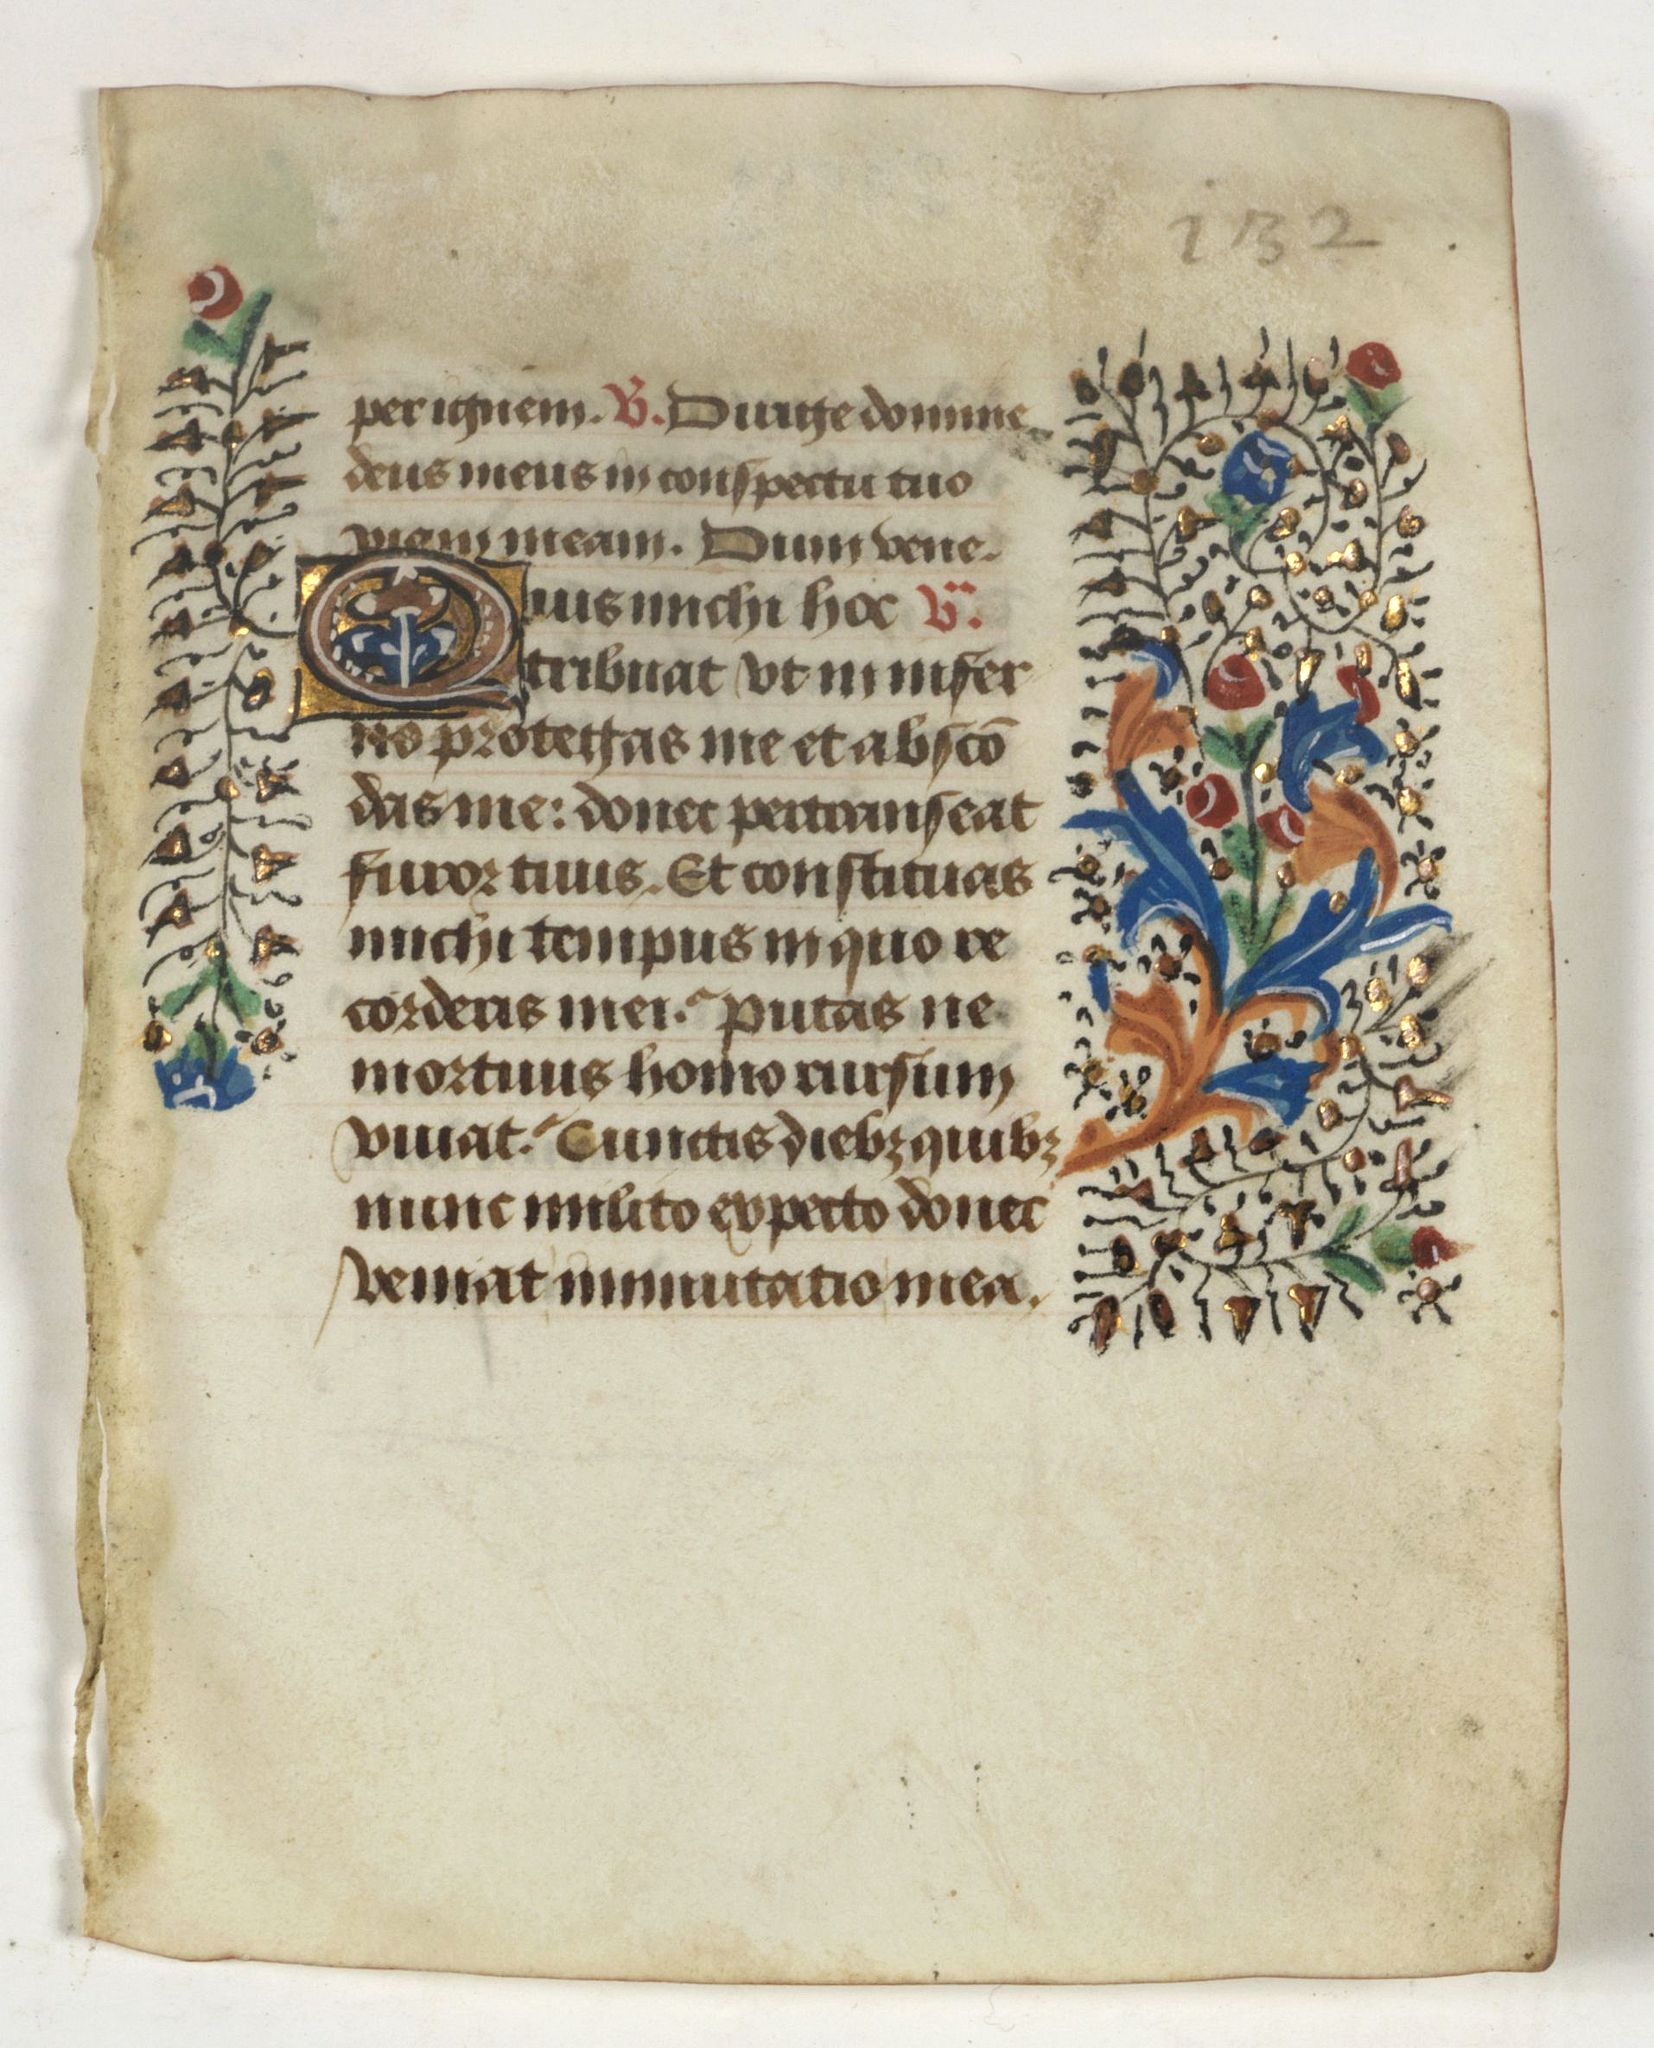 132
per ignem. V. Dirige domine
deus meus in conspectu tuo
viam meam. Dum vene.
Quis michi hoc V.
tribuat vt in infer
no protegas me et abscō
das me: donec pertranseat
furor tuus. Et constituas
michi tempus in quo re
corderis mei. Putas ne
mortuus homo rursum
viuat. Cunctis diebꝫ quibꝫ
nunc milito expecto donec
veniat inmutatio mea.